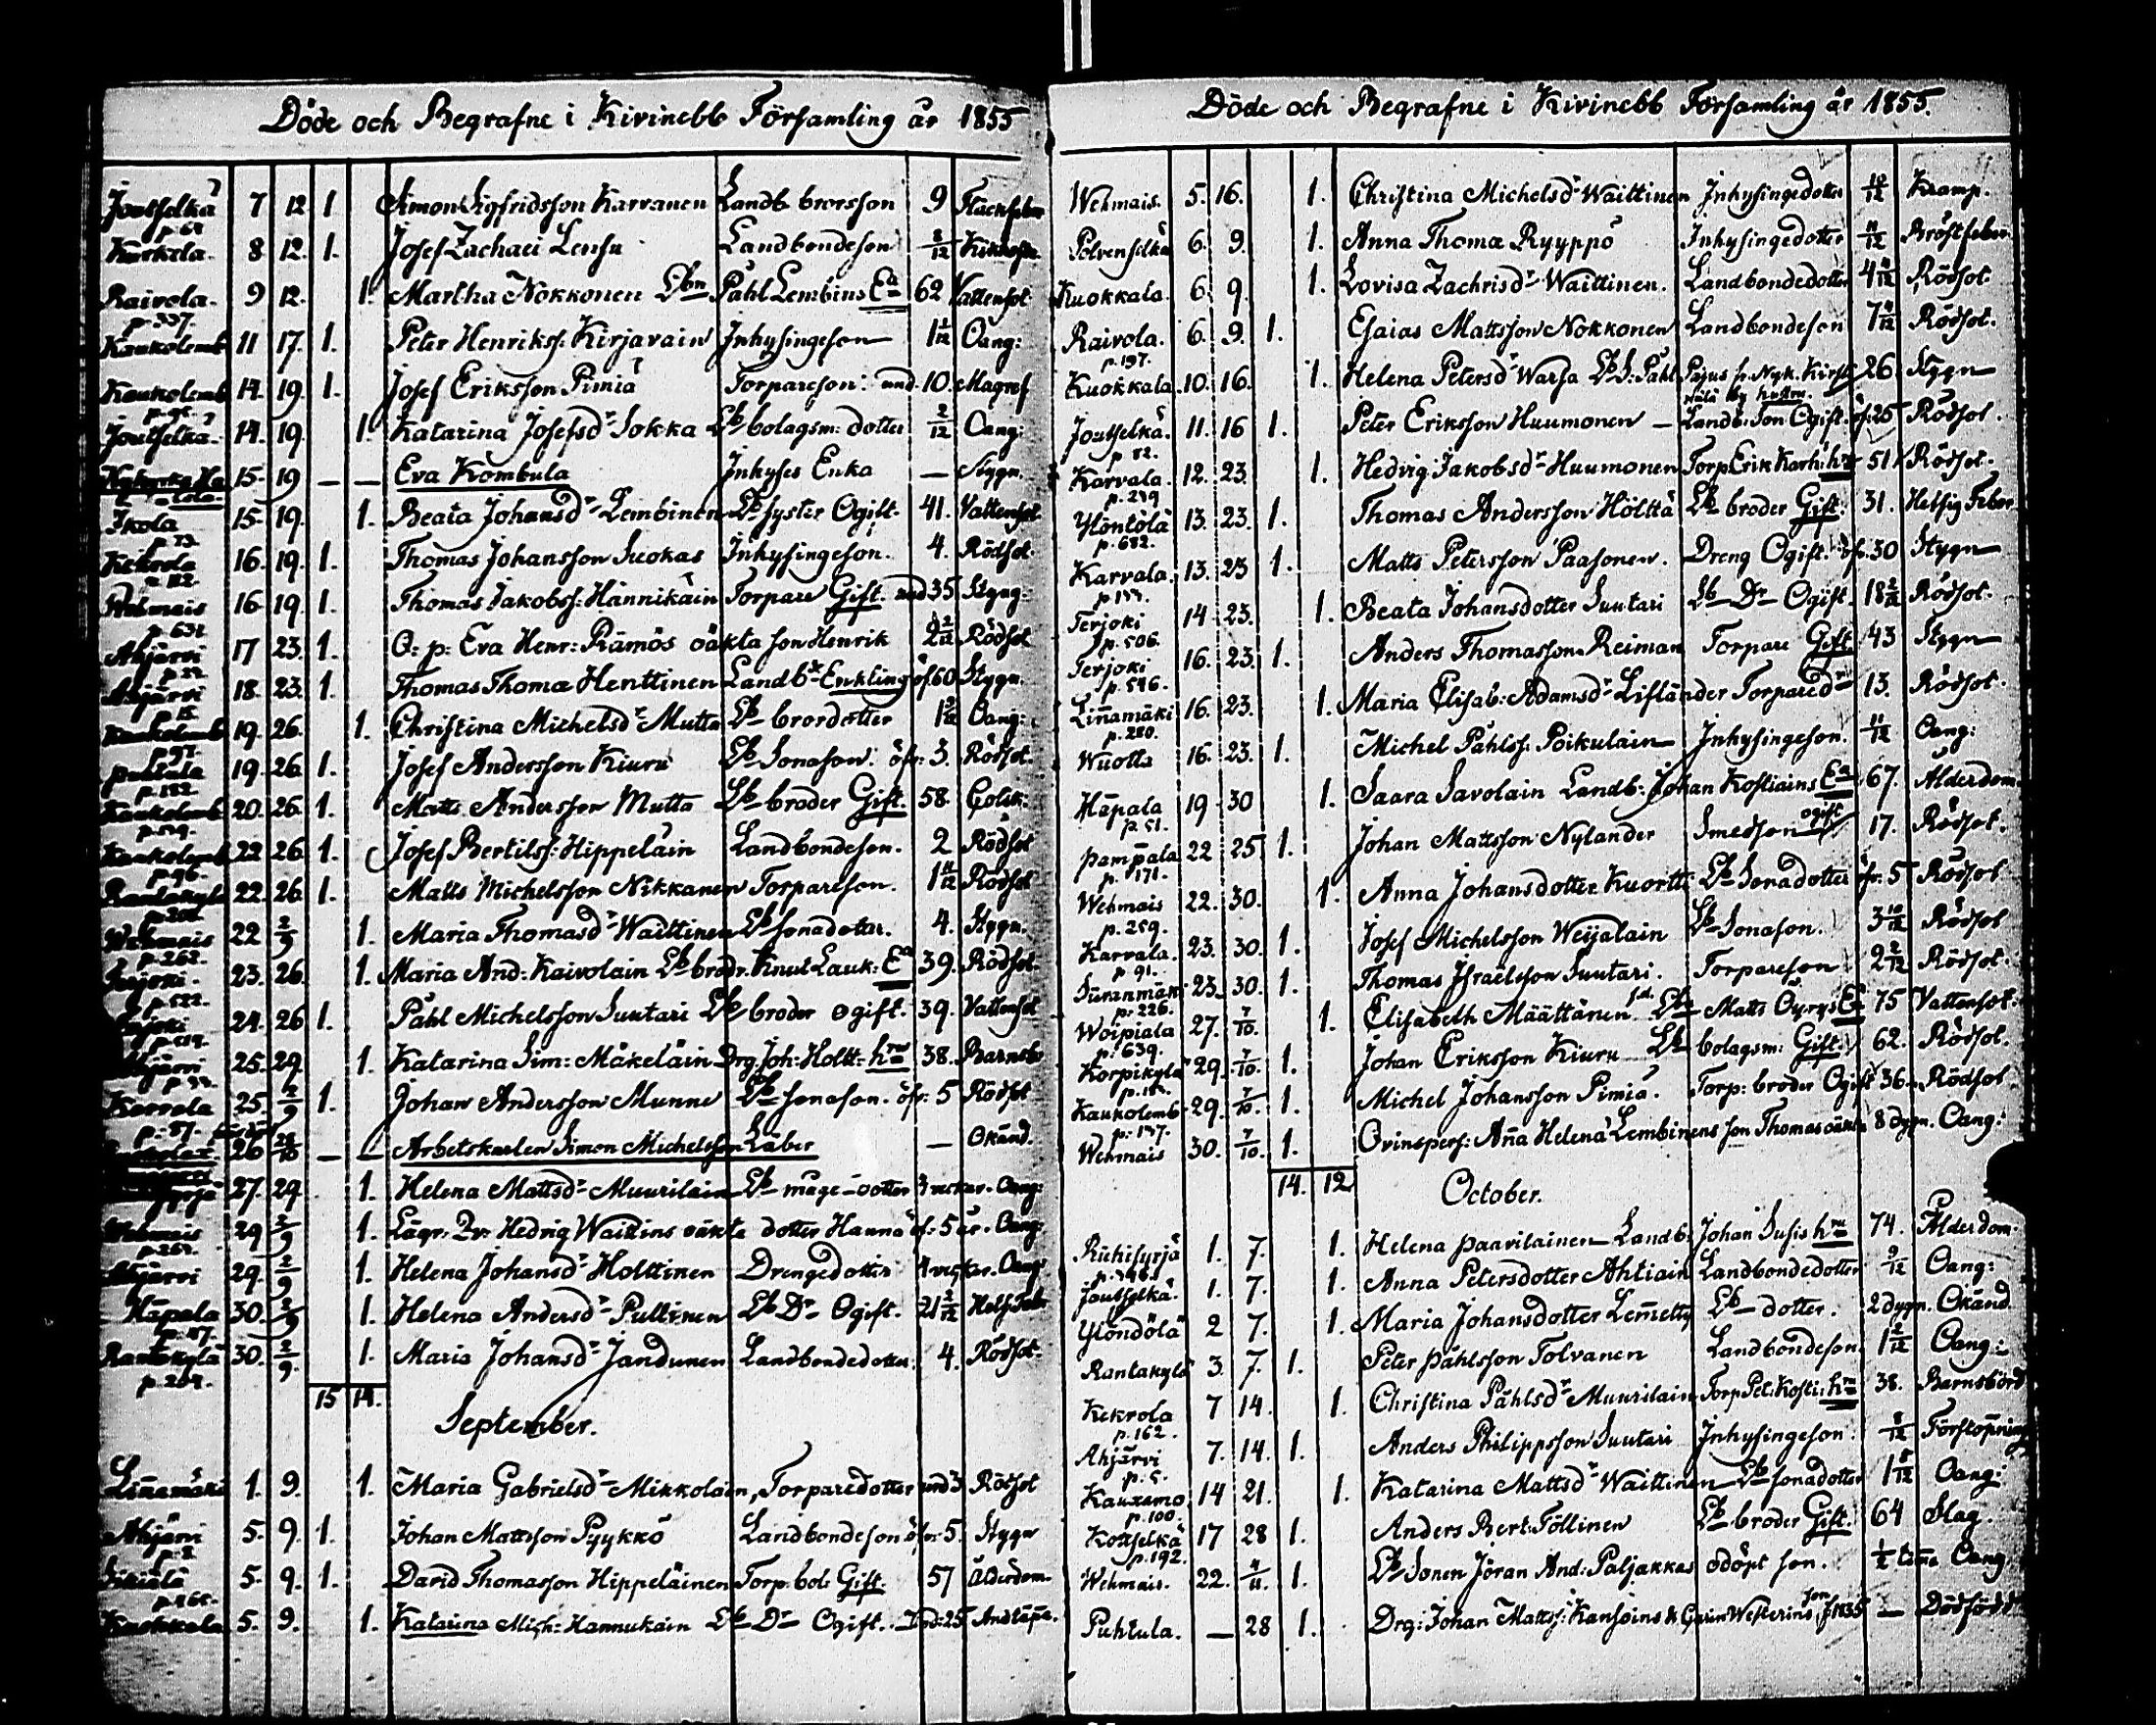 Döde och Begrafne i Kivinebb Församling år 1855
Joutselkä 7 12 1 Simon Sigfridsson Karvanen Landb brorsson 9
Kuokkala. 8 12. 1. Josef Zachaei Lensu Landbondeson 8/12
Raivola. 9 12. 1. Martha Nokkonen Lbn Påhl Lembins Ea 62 Vattensot
p. 337.
Kaukolemb 11 17. 1. Peter Henrikss: Kirjavain Inhysingeson 1 1/12 Oang:
Kaukolemb 14. 19. 1. Josef Eriksson Pimiä Torpareson: und. 10. Magref
Joutselkä. 14. 19. 1. Katarina Josefsdr Sokka Lb bolagsm: dotter 2/12 Oang:
15. 19 — — Eva Kombula Inhyses Enka — Stygn.
Ikola 15. 19. 1. Beata Johansdr Lembinen Lb syster Ogift. 41. Vattensot
p. 73.
Kekrola 16. 19. 1. Thomas Johansson Suokas Inhysingeson. 4. Rödsot.
p. 182.
Wehmais 16. 19. 1. Thomas Jakobss: Hännikäin Torpare Gift. und 35 Stygn:
p. 634
Ahjärvi 17 23. 1. Q: p: Eva Henr: Rämös oäkta son Henrik 2 2/12 Rödsot
Ahjärvi 18. 23. 1. Thomas Thomæ Henttinen Landb Enkling öf. 60 Stygn.
p. 15.
Kaukolemb 19. 26. 1. Christina Michelsdr Mutta Lb brordotter 1 3/12 Oang:
p. 97.
Puhtula 19. 26. 1. Josef Andersson Kiuru Lb Sonason. öfr: 3. Rödsot.
p. 182.
Kaukolemb 20. 26. 1. Matts Andersson Mutta Lb broder Gift. 58.
Kaukolemb 22 26. 1. Josef Bertilss: Hippeläin Landbondeson. 2 Rödsot
p. 96.
Rantakylä 22. 26. 1. Matts Michelsson Nikkanen Torpareson. 1 11/12 Rödsot
Wehmais 22 2/9 1. Maria Thomasdr Waittinen Lb sonadotter. 4. Stygn.
p. 262.
23. 26. 1. Maria And: Kaivolain Lb brodr. Knut Lauk: Ea 39. Rödsot.
p. 522.
24. 26 1. Påhl Michelsson Suutari Lb broder ogift. 39. Vattensot
Ahjärvi 25. 29. 1. Katarina Sim: Mäkeläin Drg. Joh: Holtt: hru 38. Barnsb
Karvala 25. 2/9 1. Johan Andersson Munne Lb sonason. öfr: 5 Rödsot
p: 87.
26 28/10 — — Arbetskarlen Simon Michelsson Läber — Okänd.
27. 29. 1. Helena Mattsdr Muurilain Lb måge dotter 3 veckor. Oang:
Wehmais 29 2/9 1. Lägr: Qv: Hedvig Waittins oäkta dotter Hanna öf: 5 år. Oang:
p. 261.
Ahjärvi 29. 2/9 1. Helena Johansdr Holttinen Drengedotter 4 veckor. Oang:
Häpala 30. 2/9 1. Helena Andersdr Pullinen Lb Dr Ogift. 21 2/12 Hets. Feb.
Rantakylä 30. 2/9. 1. Maria Johansdr Jandunen Landbondedotter. 4. Rödsot.
p. 204.
15 14.
September.
Linnamäki 1. 9. 1. Maria Gabrielsdr Mikkoläin, Torparedotter und 3 Rödsot
Ahjärvi 5. 9. 1. Johan Mattsson Pyykkö Landbondeson öfr. 5. Stygn
5. 9. 1. David Thomasson Hippeläinen Torp. bol. Gift. 57 Ålderdom.
Kuokkala 5. 9. 1. Katarina Mich: Hannukain Lb Dr Ogift. Und: 25 Andtäpa.
Döde och Begrafne i Kivinebb Församling år 1855.
Wehmais. 5. 16. 1. Christina Michelsdr Waittinen Inhysingedotter 10/12 Kramp.
Polvenselkä 6. 9. 1. Anna Thomæ Ryyppö Inhysingedotter 11/12 Bröstfeber.
Kuokkala. 6. 9. 1. Lovisa Zachrisdr Waittinen. Landbondedotter 4 8/12 Rödsot.
Raivola. 6. 9. 1. Esaias Mattsson Nokkonen Landbondeson 7 8/12 Rödsot.
p. 197.
Kuokkala 10. 16. 1. Helena Petersdr Warsa Lb S: Påhl Pajus fr. Nyk. Kirk 26 Stygn
by hustru.
Joutselkä. 11. 16 1. Peter Eriksson Huumonen — Landb: Son Ogift. öf. 25 Rödsot.
p. 82.
Karvala. 12. 23. 1. Hedvig Jakobsdr Huumonen Torp. Erik Karh: hru 51. Rödsot.
p. 239
Ylöntölä 13. 23. 1. Thomas Andersson Hölttä Lb broder Gift. 31. Hetsig Feber
p. 682.
Karvala. 13. 23 1. Matts Petersson Paasonen. Dreng Ogift. öfr. 30 Stygn
Terjoki 14 23. 1. Beata Johansdotter Suutari Lb Dr Ogift. 18 2/12 Rödsot.
p. 506.
Terjoki 16. 23. 1. Anders Thomasson Reiman Torpare Gift. 43 Stygn
p. 546.
Linnamäki 16. 23. 1. Maria Elisab: Adamsdr Lifländer Torparedr 13. Rödsot.
p. 280.
Wuotta 16. 23. 1. Michel Påhlss: Poikulain Inhysingeson. 11/12 Oang:
Häpala 19 30 1. Saara Savolain Landb: Johan Kostiains Ea 67. Ålderdom.
p. 51.
Pampala 22 25 1. Johan Mattsson Nylander Smedson ogift 17. Rödsot.
p. 171.
Wehmais 22. 30. 1. Anna Johansdotter Kuortti Lb Sonadotter öfr. 5 Rödsot
p. 259.
Karvala. 23. 30. 1. Josef Michelsson Weijalain Lb Sonason. 3 10/12 Rödsot
p 91.
Siiranmäki 23. 30. 1. Thomas Israelsson Suutari. Torpareson 2 2/12 Rödsot.
p. 226.
Woipiala 27. 7/10. 1. Elisabeth Määttänen Matts Öyrys Ea 75 Vattensot.
p: 639.
Korpikylä 29. 7/10. 1. Johan Eriksson Kiuru Lb bolagsm: Gift. 62. Rödsot.
Kaukolemb. 29. 7/10. 1. Michel Johansson Pimiä. Torp: broder Ogift 36. Rödsot
p: 137.
Wehmais 30. 7/10. 1. Qvinspers: Anna Helena Lembinens son Thomas oäkta 8 dygn. Oang:
14. 12
October.
Riihisyrjä 1. 7. 1. Helena Paavilainen Landb: Johan Susis hru 74. Ålderdom.
Joutselkä. 1. 7. 1. Anna Petersdotter Ahtiain Landbondedotter 9/12 Oang:
Ylöndölä 2 7. 1. Maria Johansdotter Lemetty Lb dotter. 2 dygn. Okänd
Rantakylä 3. 7. 1. Peter Påhlsson Tolvanen Landbondeson 1 2/12 Oang:
Kekrola 7 14. 1. Christina Påhlsdr Muurilain Torp Pet: Kosti: hru 38. Barnsbörd
p. 162.
Ahjärvi 7. 14. 1. Anders Philippsson Suutari Inhysingeson. 8/12 Förstoppning
p. 5.
Kauxamo 14 21. 1. Katarina Mattsdr Waittinen Lb sonadotter 1 8/12 Oang:
p. 100.
Kotselkä 17 28 1. Anders Bert: Töllinen Lb broder Gift. 64 Slag.
p. 192.
Wehmais. 22. 4/11. 1. Lb Sonen Jöran And: Paljakkas odöpt son. 1/2 Oang
Puhtula. — 28 1. Drg: Johan Mattss: Kansoins & Carin Westerins son — Dödfödd